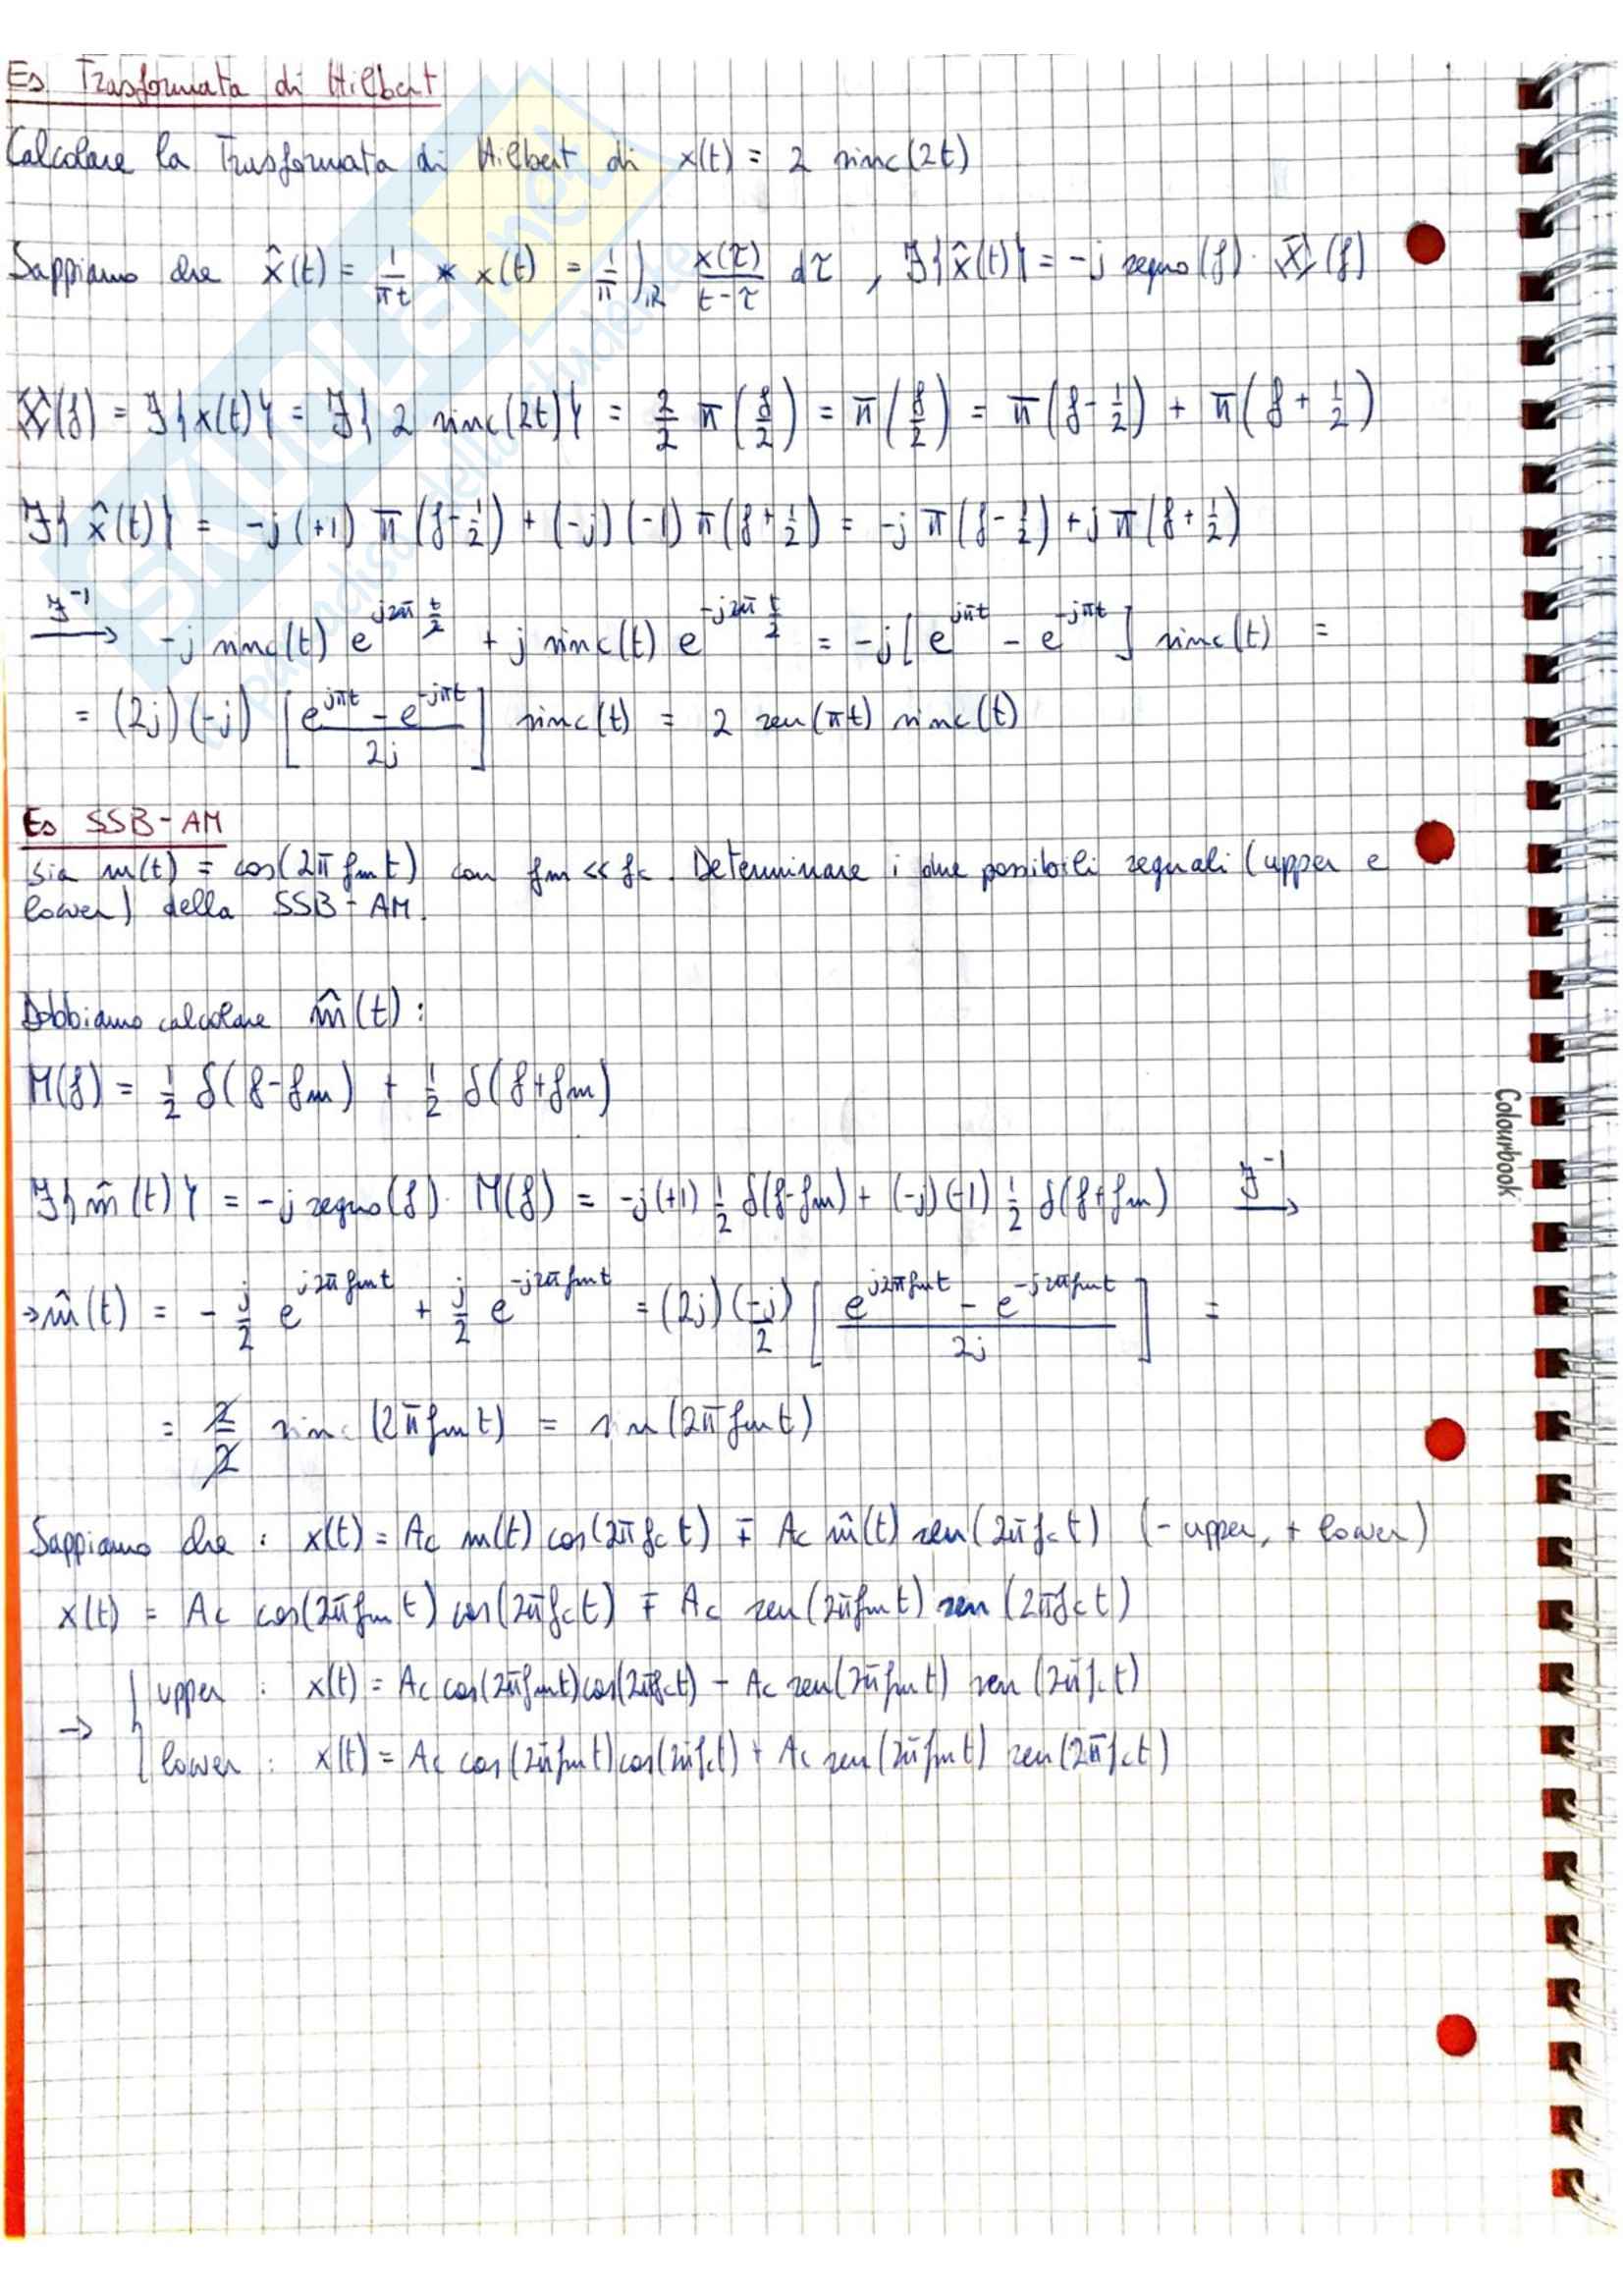 Es Trasformata di Hilbert
Calcolare la Trasformata di Hilbert di x(t) = 2 sinc(2t)
Sappiamo che x̂(t) = 1/πt * x(t) = 1/π ∫ℝ x(τ)/(t-τ) dτ , ℱ{x̂(t)} = -j segno(f) · X(f)
X(f) = ℱ{x(t)} = ℱ{2 sinc(2t)} = 2/2 π(f/2) = π(f/2) = π(f - 1/2) + π(f + 1/2)
ℱ{x̂(t)} = -j (+1) π(f - 1/2) + (-j)(-1) π(f + 1/2) = -j π(f - 1/2) + j π(f + 1/2)
ℱ⁻¹→ -j sinc(t) e^(j2π t/2) + j sinc(t) e^(-j2π t/2) = -j [e^(jπt) - e^(-jπt)] sinc(t) =
= (2j)(-j) [(e^(jπt) - e^(-jπt))/2j] sinc(t) = 2 sen(πt) sinc(t)
Es SSB-AM
Sia m(t) = cos(2π fm t) con fm << fc. Determinare i due possibili segnali (upper e
lower) della SSB-AM.
Dobbiamo calcolare m̂(t) :
M(f) = 1/2 δ(f-fm) + 1/2 δ(f+fm)
ℱ{m̂(t)} = -j segno(f) · M(f) = -j(+1) 1/2 δ(f-fm) + (-j)(-1) 1/2 δ(f+fm) ℱ⁻¹→
→ m̂(t) = - j/2 e^(j2π fm t) + j/2 e^(-j2π fm t) = (2j)(-j/2) [(e^(j2π fm t) - e^(-j2π fm t))/2j] =
= 2/2 sinc(2π fm t) = sin(2π fm t)
Sappiamo che : x(t) = Ac m(t) cos(2π fc t) ∓ Ac m̂(t) sen(2π fc t) (- upper, + lower)
x(t) = Ac cos(2π fm t) cos(2π fc t) ∓ Ac sen(2π fm t) sen(2π fc t)
→ { upper : x(t) = Ac cos(2π fm t) cos(2π fc t) - Ac sen(2π fm t) sen(2π fc t)
lower : x(t) = Ac cos(2π fm t) cos(2π fc t) + Ac sen(2π fm t) sen(2π fc t)
Colourbook
SKUOLA.net